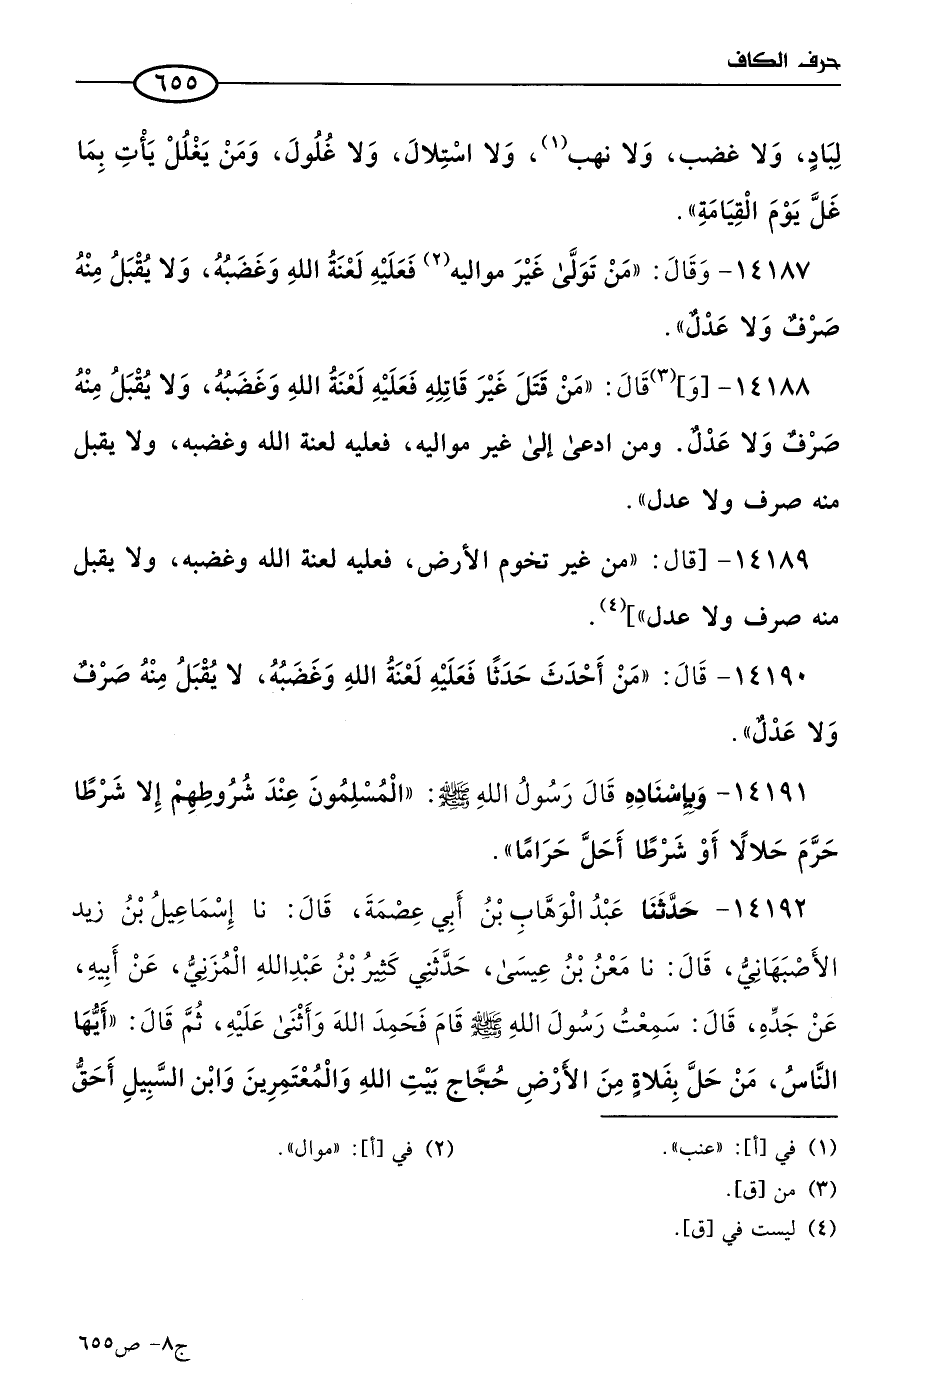 حرف الكاف
٦٥٥
لِبَادٍ، وَلا غضب، وَلا نهب(١)، وَلا اسْتِلالَ، وَلا غُلُولَ، وَمَنْ يَغْلُلْ يَأْتِ بِمَا
غَلَّ يَوْمَ الْقِيَامَةِ».
١٤١٨٧- وَقَالَ: «مَنْ تَوَلَّىٰ غَيْرَ مواليه(٢) فَعَلَيْهِ لَعْنَةُ اللهِ وَغَضَبُهُ، وَلا يُقْبَلُ مِنْهُ
صَرْفٌ وَلا عَدْلٌ».
١٤١٨٨- [وَ](٣)قَالَ: «مَنْ قَتَلَ غَيْرَ قَاتِلِهِ فَعَلَيْهِ لَعْنَةُ اللهِ وَغَضَبُهُ، وَلا يُقْبَلُ مِنْهُ
صَرْفٌ وَلا عَدْلٌ. ومن ادعىٰ إلىٰ غير مواليه، فعليه لعنة الله وغضبه، ولا يقبل
منه صرف ولا عدل».
١٤١٨٩- [قال: «من غير تخوم الأرض، فعليه لعنة الله وغضبه، ولا يقبل
منه صرف ولا عدل»](٤).
١٤١٩٠- قَالَ: «مَنْ أَحْدَثَ حَدَثًا فَعَلَيْهِ لَعْنَةُ اللهِ وَغَضَبُهُ، لا يُقْبَلُ مِنْهُ صَرْفٌ
وَلا عَدْلٌ».
١٤١٩١- وَبِإِسْنَادِهِ قَالَ رَسُولُ اللهِ ﷺ: «الْمُسْلِمُونَ عِنْدَ شُرُوطِهِمْ إِلا شَرْطًا
حَرَّمَ حَلالًا أَوْ شَرْطًا أَحَلَّ حَرَامًا».
١٤١٩٢- حَدَّثَنَا عَبْدُ الْوَهَّابِ بْنُ أَبِي عِصْمَةَ، قَالَ: نا إِسْمَاعِيلُ بْنُ زيد
الأَصْبَهَانِيُّ، قَالَ: نا مَعْنُ بْنُ عِيسَىٰ، حَدَّثَنِي كَثِيرُ بْنُ عَبْدِاللهِ الْمُزَنِيُّ، عَنْ أَبِيهِ،
عَنْ جَدِّهِ، قَالَ: سَمِعْتُ رَسُولَ اللهِ ﷺ قَامَ فَحَمِدَ اللهَ وَأَثْنَىٰ عَلَيْهِ، ثُمَّ قَالَ: «أَيُّهَا
النَّاسُ، مَنْ حَلَّ بِفَلاةٍ مِنَ الأَرْضِ حُجَّاج بَيْتِ اللهِ وَالْمُعْتَمِرِينَ وَابْن السَّبِيلِ أَحَقُّ
(١) في [أ]: «عنب». (٢) في [أ]: «موال».
(٣) من [ق].
(٤) ليست في [ق].
ج٨- ص٦٥٥